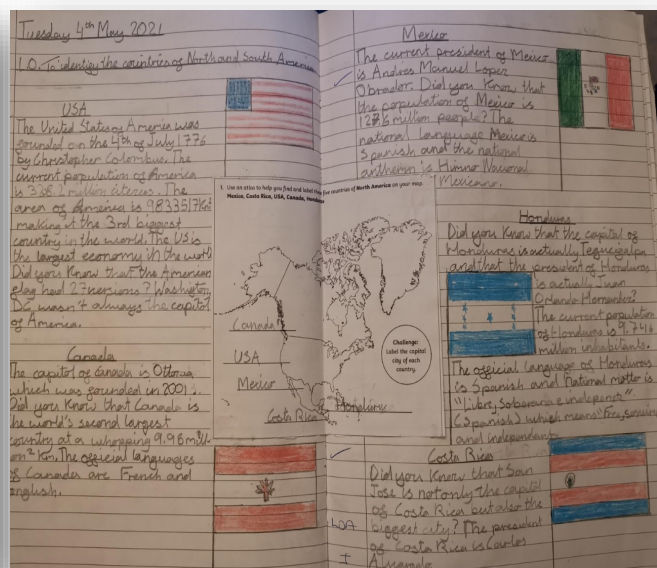 Tuesday 4th May 2021
L.O. To identify the countries of North and South America
USA
The United States of America was
founded on the 4th of July 1776
by Christopher Colombus. The
current population of America
is 328.2 million The
area of America is 9833517km²
making it the 3rd biggest
country in the world. The US is
the largest economy in the world
Did you know that the American
flag had 27 versions? Washington
DC wasn't always the capital
of America.
Canada
The capital of Canada is Ottowa
which was founded in 2001.
Did you know that Canada is
the world's second largest
country at a whopping 9.98 mill-
on ² km. The official languages
of Canada are French and
english.
1 Use an atlas to help you find and label these five countries of North America on your map.
Mexico, Costa Rica, USA, Canada, Honduras
Canada
USA
Mexico
Costa Rica
Honduras
Challenge:
Label the capital
city of each
country.
Mexico
The current president of Mexico
is Andres Manuel Lopez
Obrador. Did you know that
the population of Mexico is
127.6 million people? The
national language Mexico is
Spanish and the national
anthem is Himno Nacional
Mexicano.
Honduras
Did you know that the capital of
Honduras is actually Tegucigalpa
and that the president of Honduras
is actually Juan
Orlando Hernandez?
The current population
of Honduras is 9.746
million inhabitants.
The official language of Honduras
is Spanish and national motto is
"Libre, Soberana e indepente"
(Spanish) which means "Free, sovereign
and independent
Costa Rica
Did you know that San
Jose is not only the capital
of Costa Rica but also the
biggest city? The president
of Costa Rica is Carlos
Alvarado
LOA
I